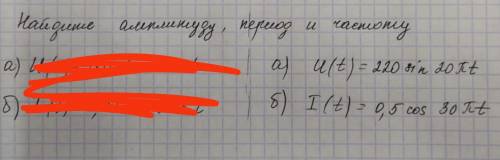 Найдите амплитуду, период и частоту
а) а) U(t) = 220 sin 20πt
б) б) I(t) = 0,5 cos 30πt